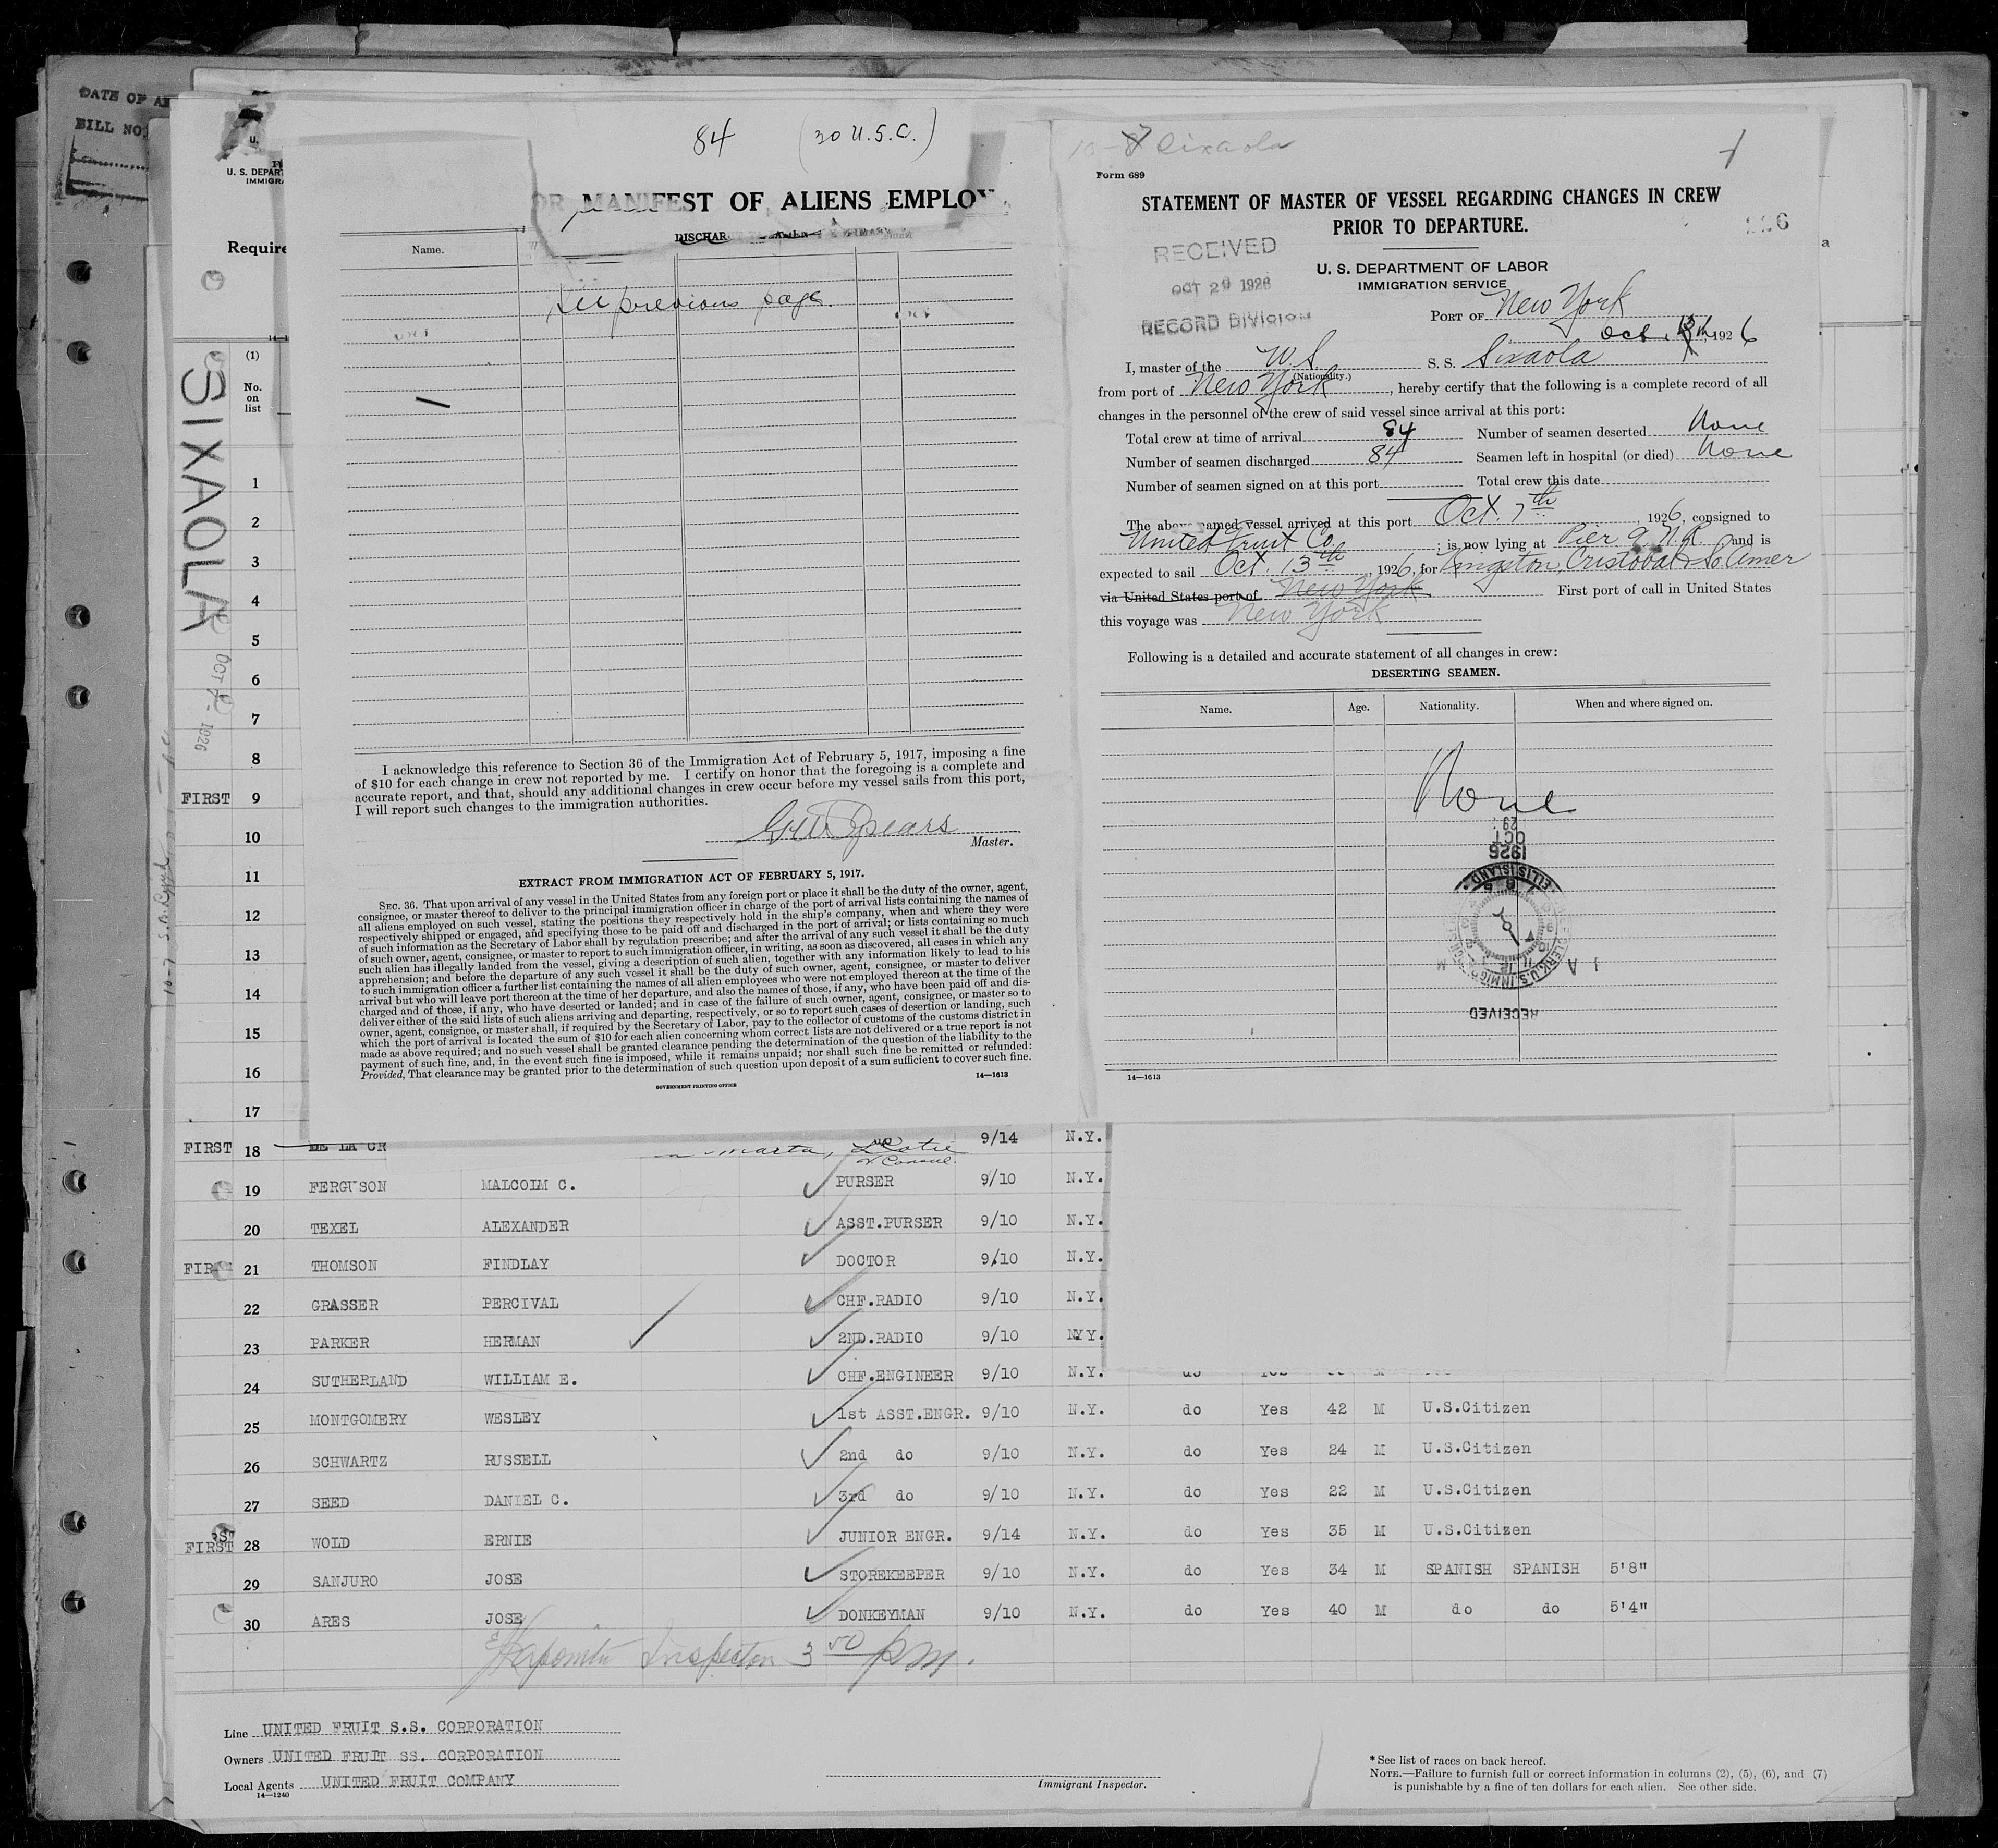 DATE OF
BILL NO.
84 (30 U.S.C.)
U. S. DEPAR
IMMIGRA
Require
OR MANIFEST OF ALIENS EMPLOY
DISCHAR
Name.
See previous page.
I acknowledge this reference to Section 36 of the Immigration Act of February 5, 1917, imposing a fine
of $10 for each change in crew not reported by me. I certify on honor that the foregoing is a complete and
accurate report, and that, should any additional changes in crew occur before my vessel sails from this port,
I will report such changes to the immigration authorities.
GW Spears
Master.
EXTRACT FROM IMMIGRATION ACT OF FEBRUARY 5, 1917.
SEC. 36. That upon arrival of any vessel in the United States from any foreign port or place it shall be the duty of the owner, agent,
consignee, or master thereof to deliver to the principal immigration officer in charge of the port of arrival lists containing the names of
all aliens employed on such vessel, stating the positions they respectively hold in the ship's company, when and where they were
respectively shipped or engaged, and specifying those to be paid off and discharged in the port of arrival; or lists containing so much
of such information as the Secretary of Labor shall by regulation prescribe; and after the arrival of any such vessel it shall be the duty
of such owner, agent, consignee, or master to report to such immigration officer, in writing, as soon as discovered, all cases in which any
such alien has illegally landed from the vessel, giving a description of such alien, together with any information likely to lead to his
apprehension; and before the departure of any such vessel it shall be the duty of such owner, agent, consignee, or master to deliver
to such immigration officer a further list containing the names of all alien employees who were not employed thereon at the time of the
arrival but who will leave port thereon at the time of her departure, and also the names of those, if any, who have been paid off and dis-
charged and of those, if any, who have deserted or landed; and in case of the failure of such owner, agent, consignee, or master so to
deliver either of the said lists of such aliens arriving and departing, respectively, or so to report such cases of desertion or landing, such
owner, agent, consignee, or master shall, if required by the Secretary of Labor, pay to the collector of customs of the customs district in
which the port of arrival is located the sum of $10 for each alien concerning whom correct lists are not delivered or a true report is not
made as above required; and no such vessel shall be granted clearance pending the determination of the question of the liability to the
payment of such fine, and, in the event such fine is imposed, while it remains unpaid; nor shall such fine be remitted or refunded:
Provided, That clearance may be granted prior to the determination of such question upon deposit of a sum sufficient to cover such fine.
GOVERNMENT PRINTING OFFICE
14—1613
Sixaola
Form 689
STATEMENT OF MASTER OF VESSEL REGARDING CHANGES IN CREW
PRIOR TO DEPARTURE.
RECEIVED
OCT 29 1926
RECORD DIVISION
U. S. DEPARTMENT OF LABOR
IMMIGRATION SERVICE
PORT OF New York
Oct. , 1926
I, master of the U.S. S. S. Sixaola
(Nationality.)
from port of New York, hereby certify that the following is a complete record of all
changes in the personnel of the crew of said vessel since arrival at this port:
Total crew at time of arrival 84 Number of seamen deserted None
Number of seamen discharged 84 Seamen left in hospital (or died) None
Number of seamen signed on at this port Total crew this date
The above named vessel arrived at this port Oct. 7th, 1926, consigned to
United Fruit Co.; is now lying at Pier 9, N.R and is
expected to sail Oct. 13th, 1926, for Kingston, Cristobal & So. Amer
via United States port of New York First port of call in United States
this voyage was New York
Following is a detailed and accurate statement of all changes in crew:
DESERTING SEAMEN.
Name. Age. Nationality. When and where signed on.
None
29
OCT
1926
ELLIS ISLAND
RECEIVED
14—1613
SIXAOLA
OCT 7 - 1926
(1)
No.
on
list
1
2
3
4
5
6
7
8
FIRST 9
10
11
12
13
14
15
16
17
FIRST 18 DE LA CR 9/14 N.Y.
19 FERGUSON MALCOLM C. PURSER 9/10 N.Y.
20 TEXEL ALEXANDER ASST.PURSER 9/10 N.Y.
FIRST 21 THOMSON FINDLAY DOCTOR 9/10 N.Y.
22 GRASSER PERCIVAL CHF.RADIO 9/10 N.Y.
23 PARKER HERMAN 2ND.RADIO 9/10 N.Y.
24 SUTHERLAND WILLIAM E. CHF.ENGINEER 9/10 N.Y.
25 MONTGOMERY WESLEY 1st ASST.ENGR. 9/10 N.Y. do Yes 42 M U.S.Citizen
26 SCHWARTZ RUSSELL 2nd do 9/10 N.Y. do Yes 24 M U.S.Citizen
27 SEED DANIEL C. 3rd do 9/10 N.Y. do Yes 22 M U.S.Citizen
FIRST 28 WOLD ERNIE JUNIOR ENGR. 9/14 N.Y. do Yes 35 M U.S.Citizen
29 SANJURO JOSE STOREKEEPER 9/10 N.Y. do Yes 34 M SPANISH SPANISH 5'8"
30 ARES JOSE DONKEYMAN 9/10 N.Y. do Yes 40 M do do 5'4"
Inspector 3 00 pm.
Line UNITED FRUIT S.S. CORPORATION
Owners UNITED FRUIT SS. CORPORATION
Local Agents UNITED FRUIT COMPANY
14—1240
Immigrant Inspector.
* See list of races on back hereof.
NOTE.—Failure to furnish full or correct information in columns (2), (5), (6), and (7)
is punishable by a fine of ten dollars for each alien. See other side.